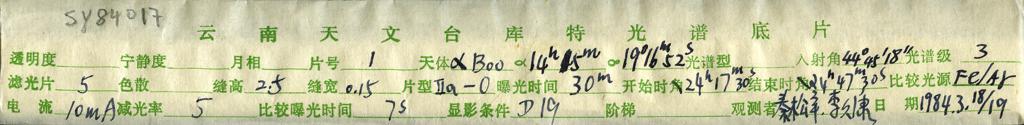 SY84017
云南天文台库特光谱底片
透明度 宁静度 月相 片号 1 天体 α Boo α 14h 15m δ 19°16m52s 光谱型 入射角 44°45'18" 光谱级 3
滤光片 5 色散 缝高 2.5 缝宽 0.15 片型 IIa-O 曝光时间 30m 开始时角 24h17m30s 结束时角 24h47m30s 比较光源 Fe/Ar
电流 10mA 减光率 5 比较曝光时间 7s 显影条件 D19 阶梯 观测者 日期 1984.3.18/19